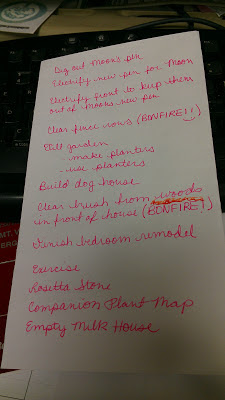 Dig out Moon's pen
Electrify new pen for Moon
Electrify front to keep them
out of Moons new pen
Clear fence rows (BONFIRE!!)
Still garden
- make planters
- use planters
Build dog house
Clear brush from woods
in front of house (BONFIRE!)
Finish bedroom remodel
Exercise
Rosetta Stone
Companion Plant Map
Empty Milk House
MT. V
ERG